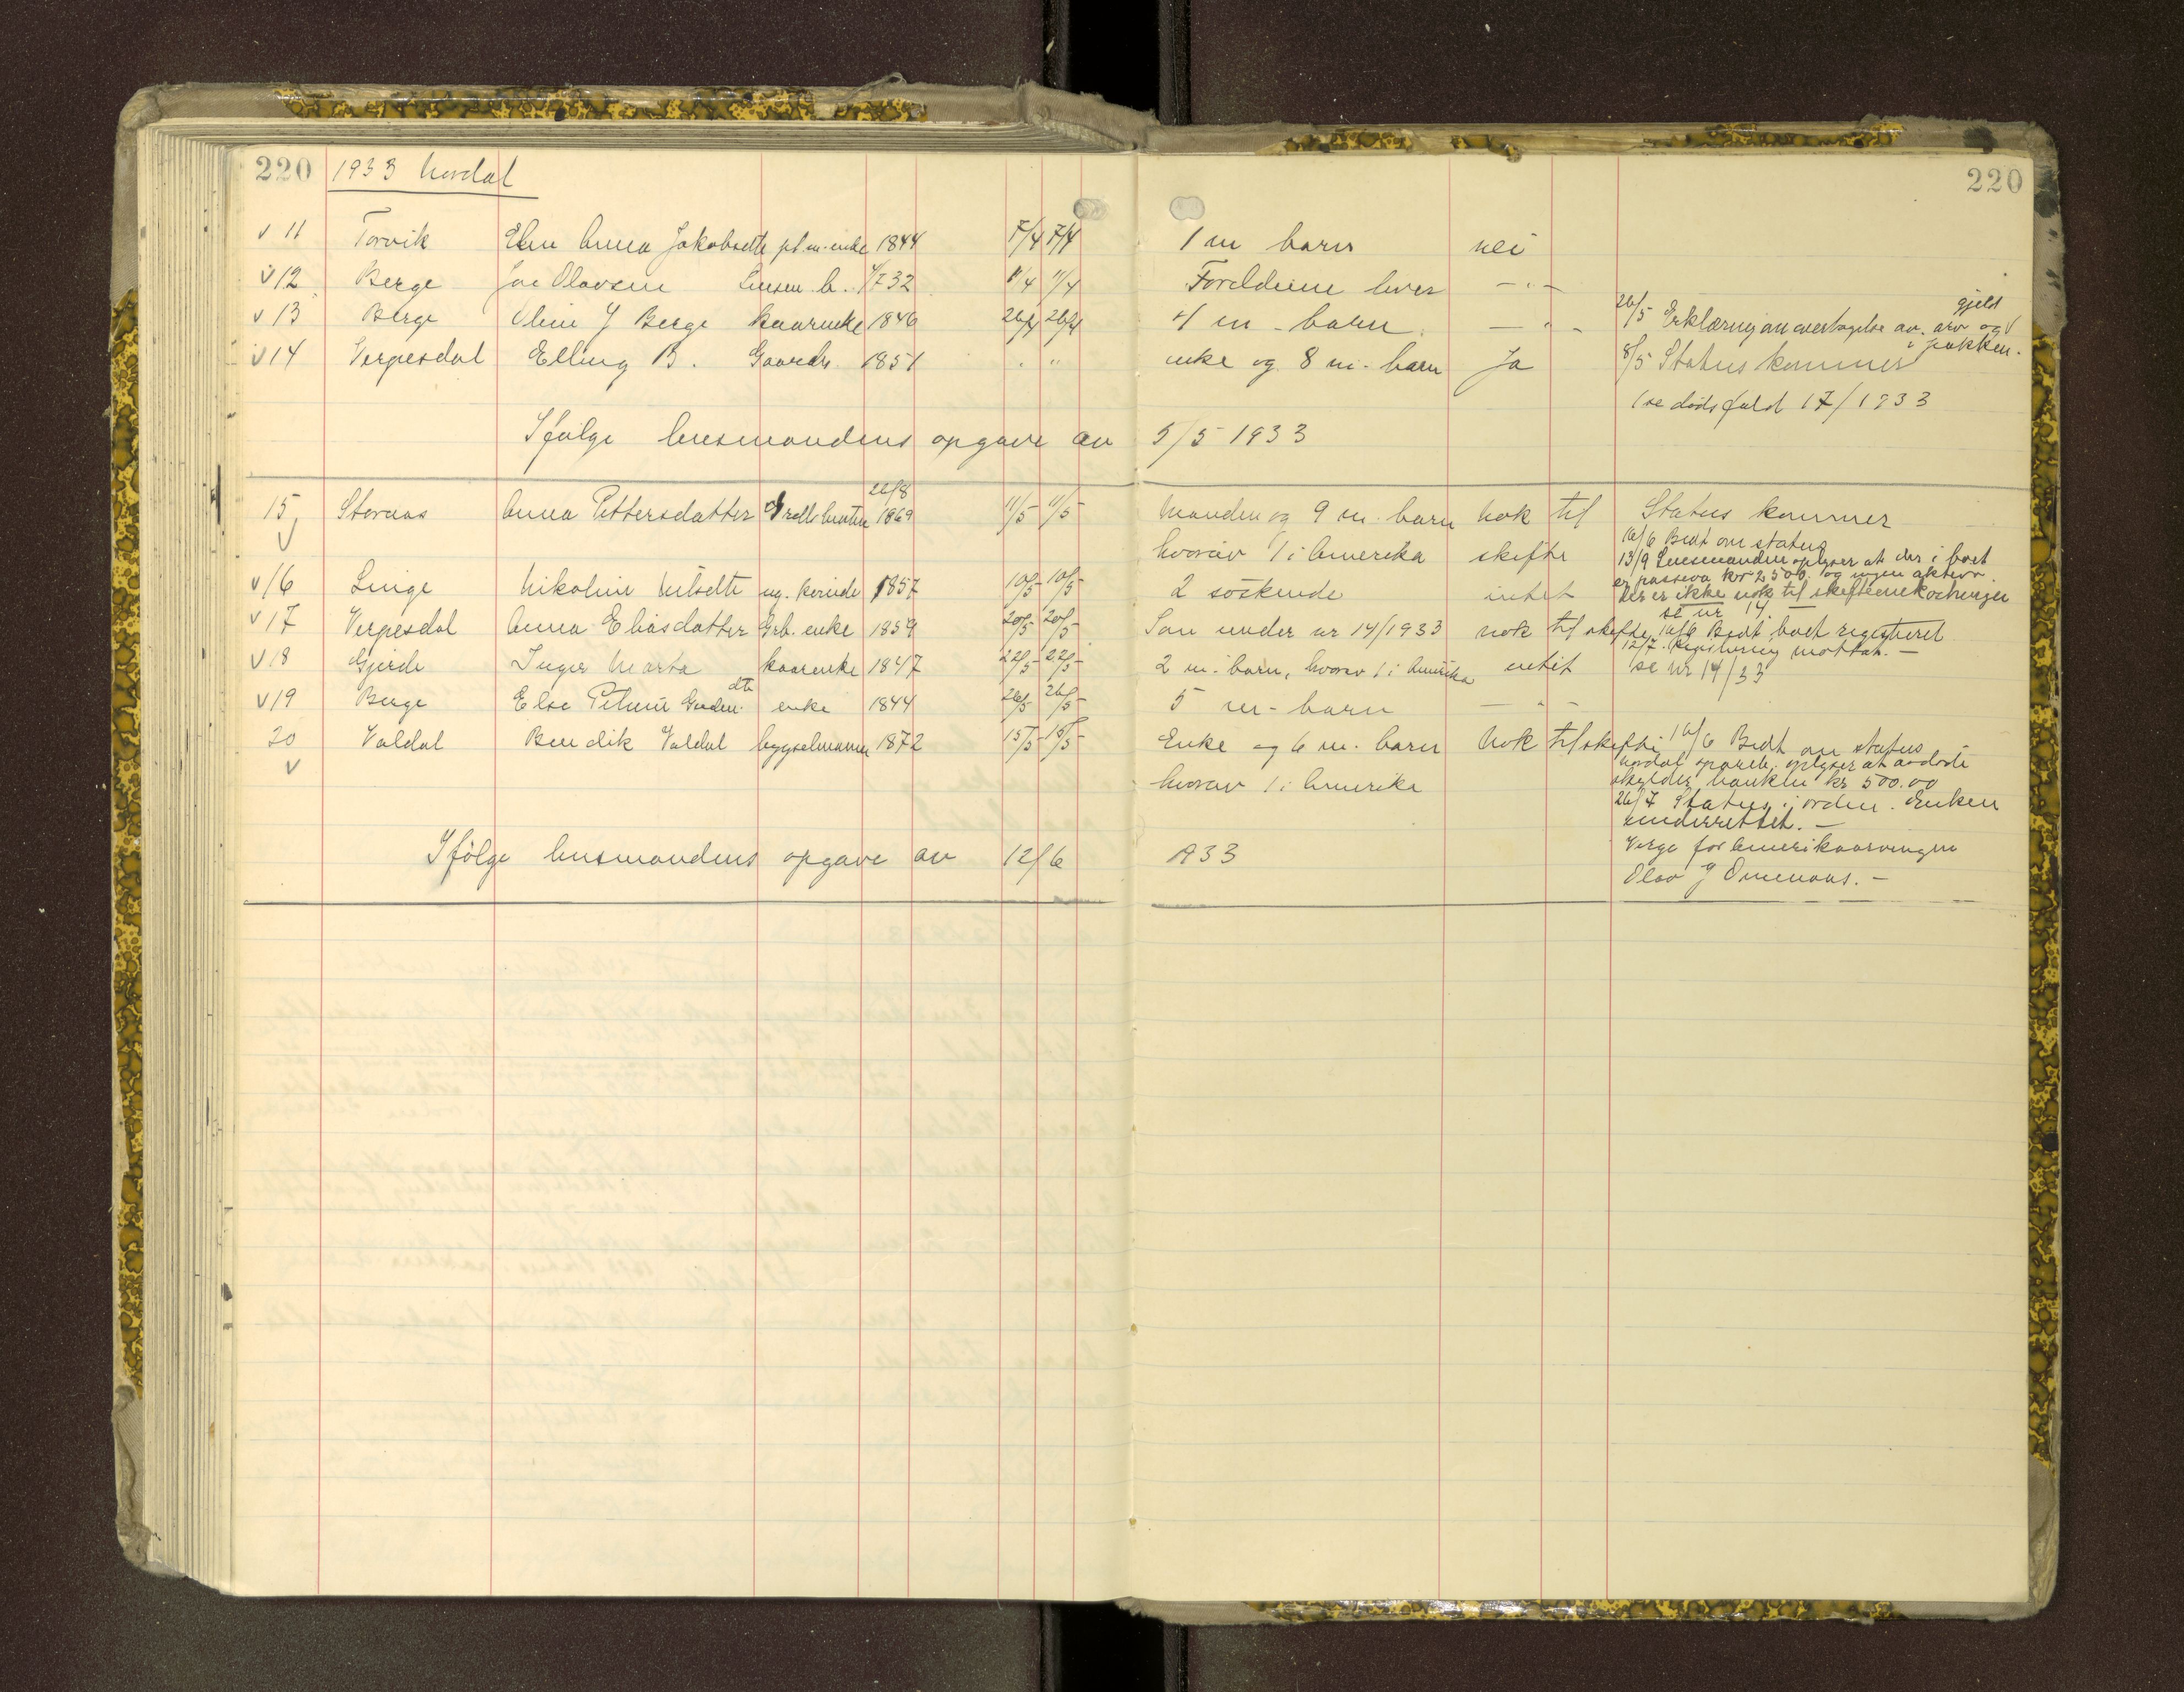 220 1933 Nordal 220
v 11 Torvik Elen Anna Jakobsdtr enke 1844 7/4 7/4 1 m barn nei
v 12 Berge Olavsen 1/7 32 11/4 11/4 Foreldrene lever — " —
v 13 Berge Oline J Berge kaarenke 1846 26/4 26/4 4 m-barn — " — 26/5 Erklæring om overtagelse av arv og gjeld
i pakken.
v 14 Vergesdal Elling B. Gaardbr. 1851 " " enke og 8 m. barn Ja 8/5 Status kommer
(se dødsfald 17/1933
Ifølge lensmandens opgave av 5/5 1933
15 Stornas Anna Pettersdatter 26/8 1869 11/5 11/5 Manden og 9 m. barn nok til Status kommer
v hvorav 1 i Amerika skifte 16/6 Bedt om status
13/9 Lensmanden oplyser at der i boet
v 16 Linge Nikoline Nilsdtr ug. kvinde 1857 10/5 10/5 2 søskende intet er passiva kr 2500. og ingen aktiva.
der er ikke nok til skifteomkostninger
v 17 Vergesdal Anna Eliasdatter Grb. enke 1859 20/5 20/5 Som under nr 14/1933 nok til skifte se nr 14 16/6 Bedt boet registreret
12/7. Registrering mottat. —
v 18 Gjerde Inger Marta kaarenke 1847 22/5 22/5 2 m. barn, hvorav 1 i Amerika intet se nr 14/33
v 19 Berge Else Petrine dtr enke 1844 26/5 26/5 5 m-barn — " —
20 Valdal Bendik Valdal bygselmann 1872 15/5 15/5 Enke og 6 m. barn Nok til skifte 16/6 Bedt om status
v hvorav 1 i Amerika Nordal spareb. oplyser at avdøde
skylder banken kr 500.00
26/7 Status i orden. Enken
underrettet. —
Ifølge lensmandens opgave av 12/6 1933 Verge for Amerikaarvingen
Olav J Omenaas. —